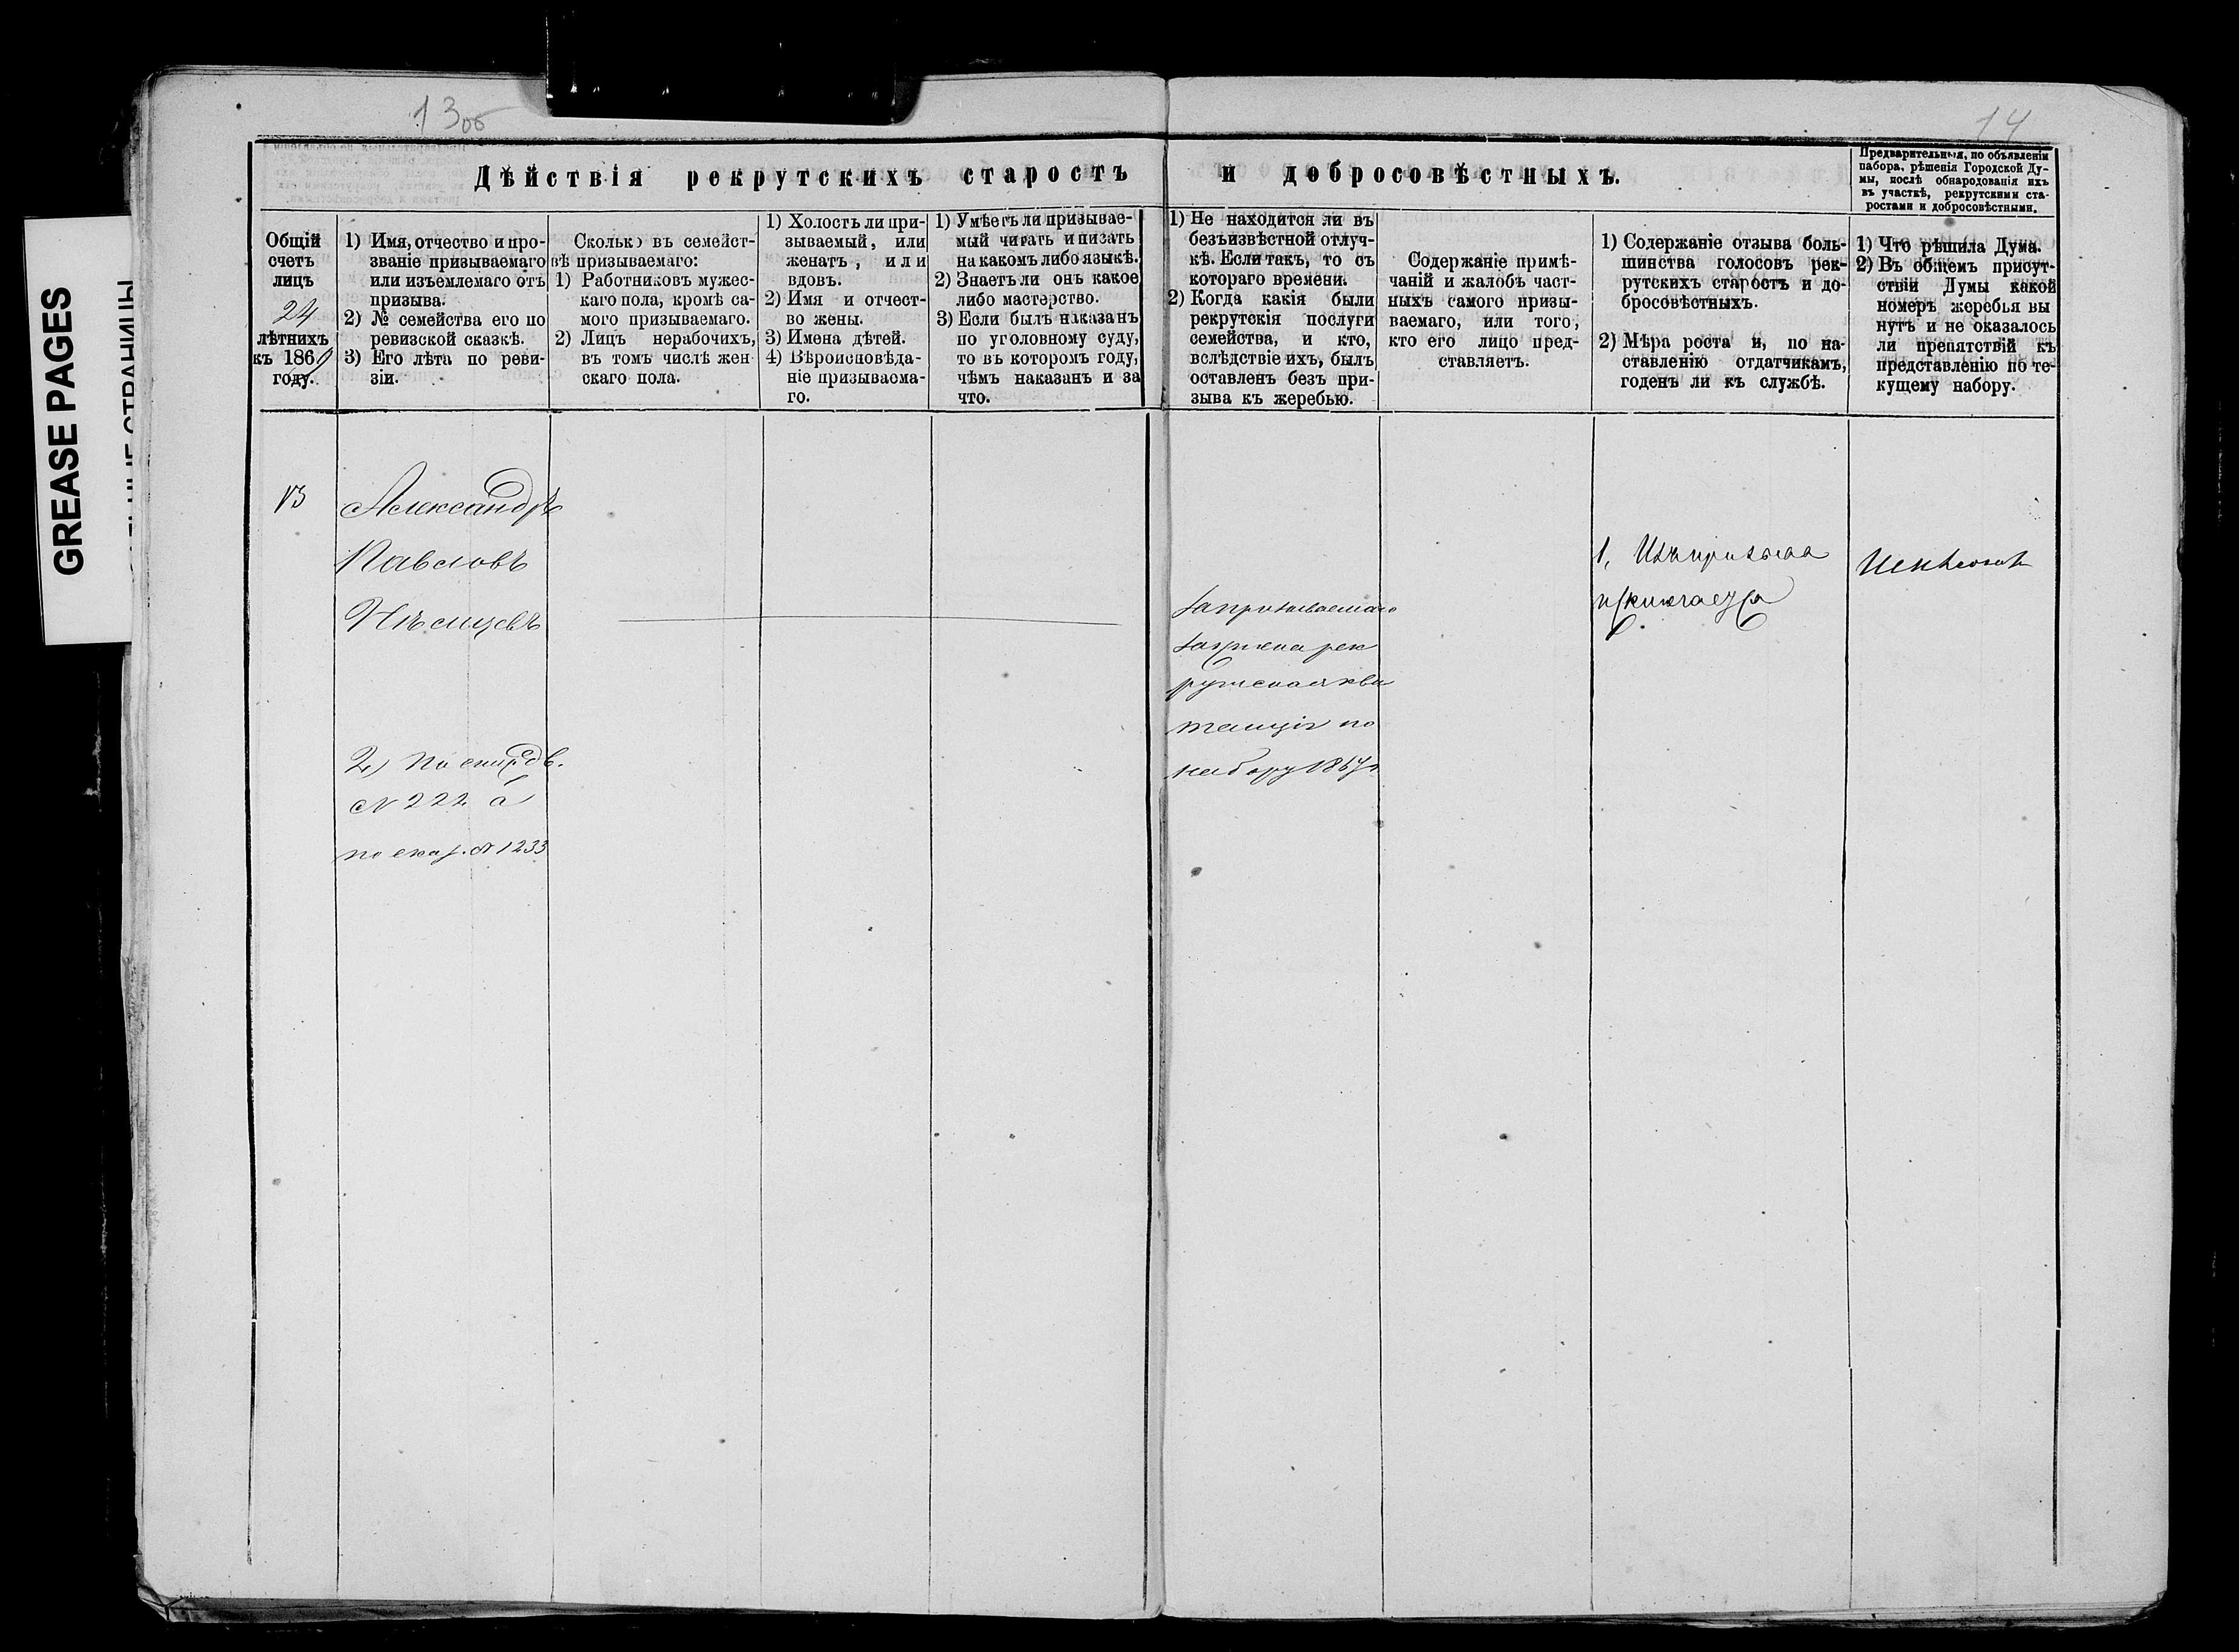 GREASE PAGES
13 об
14
Дѣйствія рекрутскихъ старостъ и добросовѣстныхъ.
Предварительныя, по объявленіи
набора, рѣшенія Городской Ду-
мы, послѣ обнародованія ихъ
въ участкѣ, рекрутскими ста-
ростами и добросовѣстными.
Общій
счетъ
лицъ
24
лѣтнихъ
къ 1869
году.
1) Имя, отчество и про-
званіе призываемаго
или изъемлемаго отъ
призыва.
2) № семейства его по
ревизской сказкѣ.
3) Его лѣта по реви-
зіи.
Сколько въ семейст-
вѣ призываемаго:
1) Работниковъ мужес-
каго пола, кромѣ са-
мого призываемаго.
2) Лицъ нерабочихъ,
въ томъ числѣ жен-
скаго пола.
1) Холостъ ли при-
зываемый, или
женатъ, или
вдовъ.
2) Имя и отчест-
во жены.
3) Имена дѣтей.
4) Вѣроисповѣда-
ніе призываема-
го.
1) Умѣетъ ли призывае-
мый читать и писать
на какомъ либо языкѣ.
2) Знаетъ ли онъ какое
либо мастерство.
3) Если былъ наказанъ
по уголовному суду,
то въ которомъ году,
чѣмъ наказанъ и за
что.
1) Не находится ли въ
безъизвѣстной отлуч-
кѣ. Если такъ, то съ
котораго времени.
2) Когда какія были
рекрутскія послуги
семейства, и кто,
вслѣдствіе ихъ, былъ
оставленъ безъ при-
зыва къ жеребью.
Содержаніе примѣ-
чаній и жалобъ част-
ныхъ самого призы-
ваемаго, или того,
кто его лицо пред-
ставляетъ.
1) Содержаніе отзыва боль-
шинства голосовъ рек-
рутскихъ старостъ и до-
бросовѣстныхъ.
2) Мѣра роста и, по на-
ставленію отдатчикамъ,
годенъ ли къ службѣ.
1) Что рѣшила Дума.
2) Въ общемъ присут-
ствіи Думы какой
номеръ жеребья вы
нутъ и не оказалось
ли препятствій къ
представленію по те-
кущему набору.
13
Александръ
Павловъ
Нѣмцевъ
2) По
№ 222 а
по сказ. № 1233
за призываемаго
зачтена рек
рутская кви
танція по
набору 1867 г
1, Изъ призыва
исключается